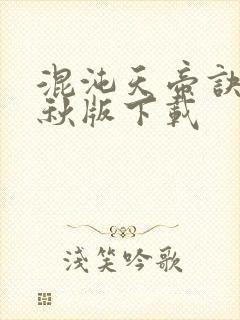 混沌天帝訣
秋版下載
淺笑吟歌